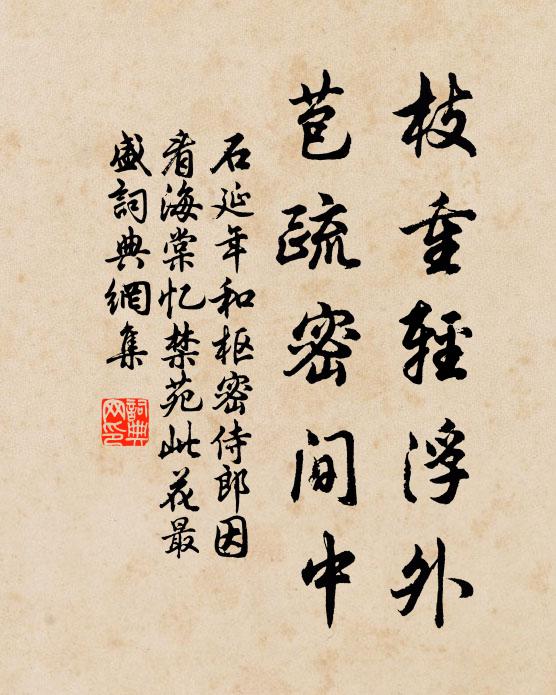 枝重輕浮外
苞疏密間中
石延年和枢密侍郎因
看海棠忆禁苑此花最
盛詞典網集
詞典网印